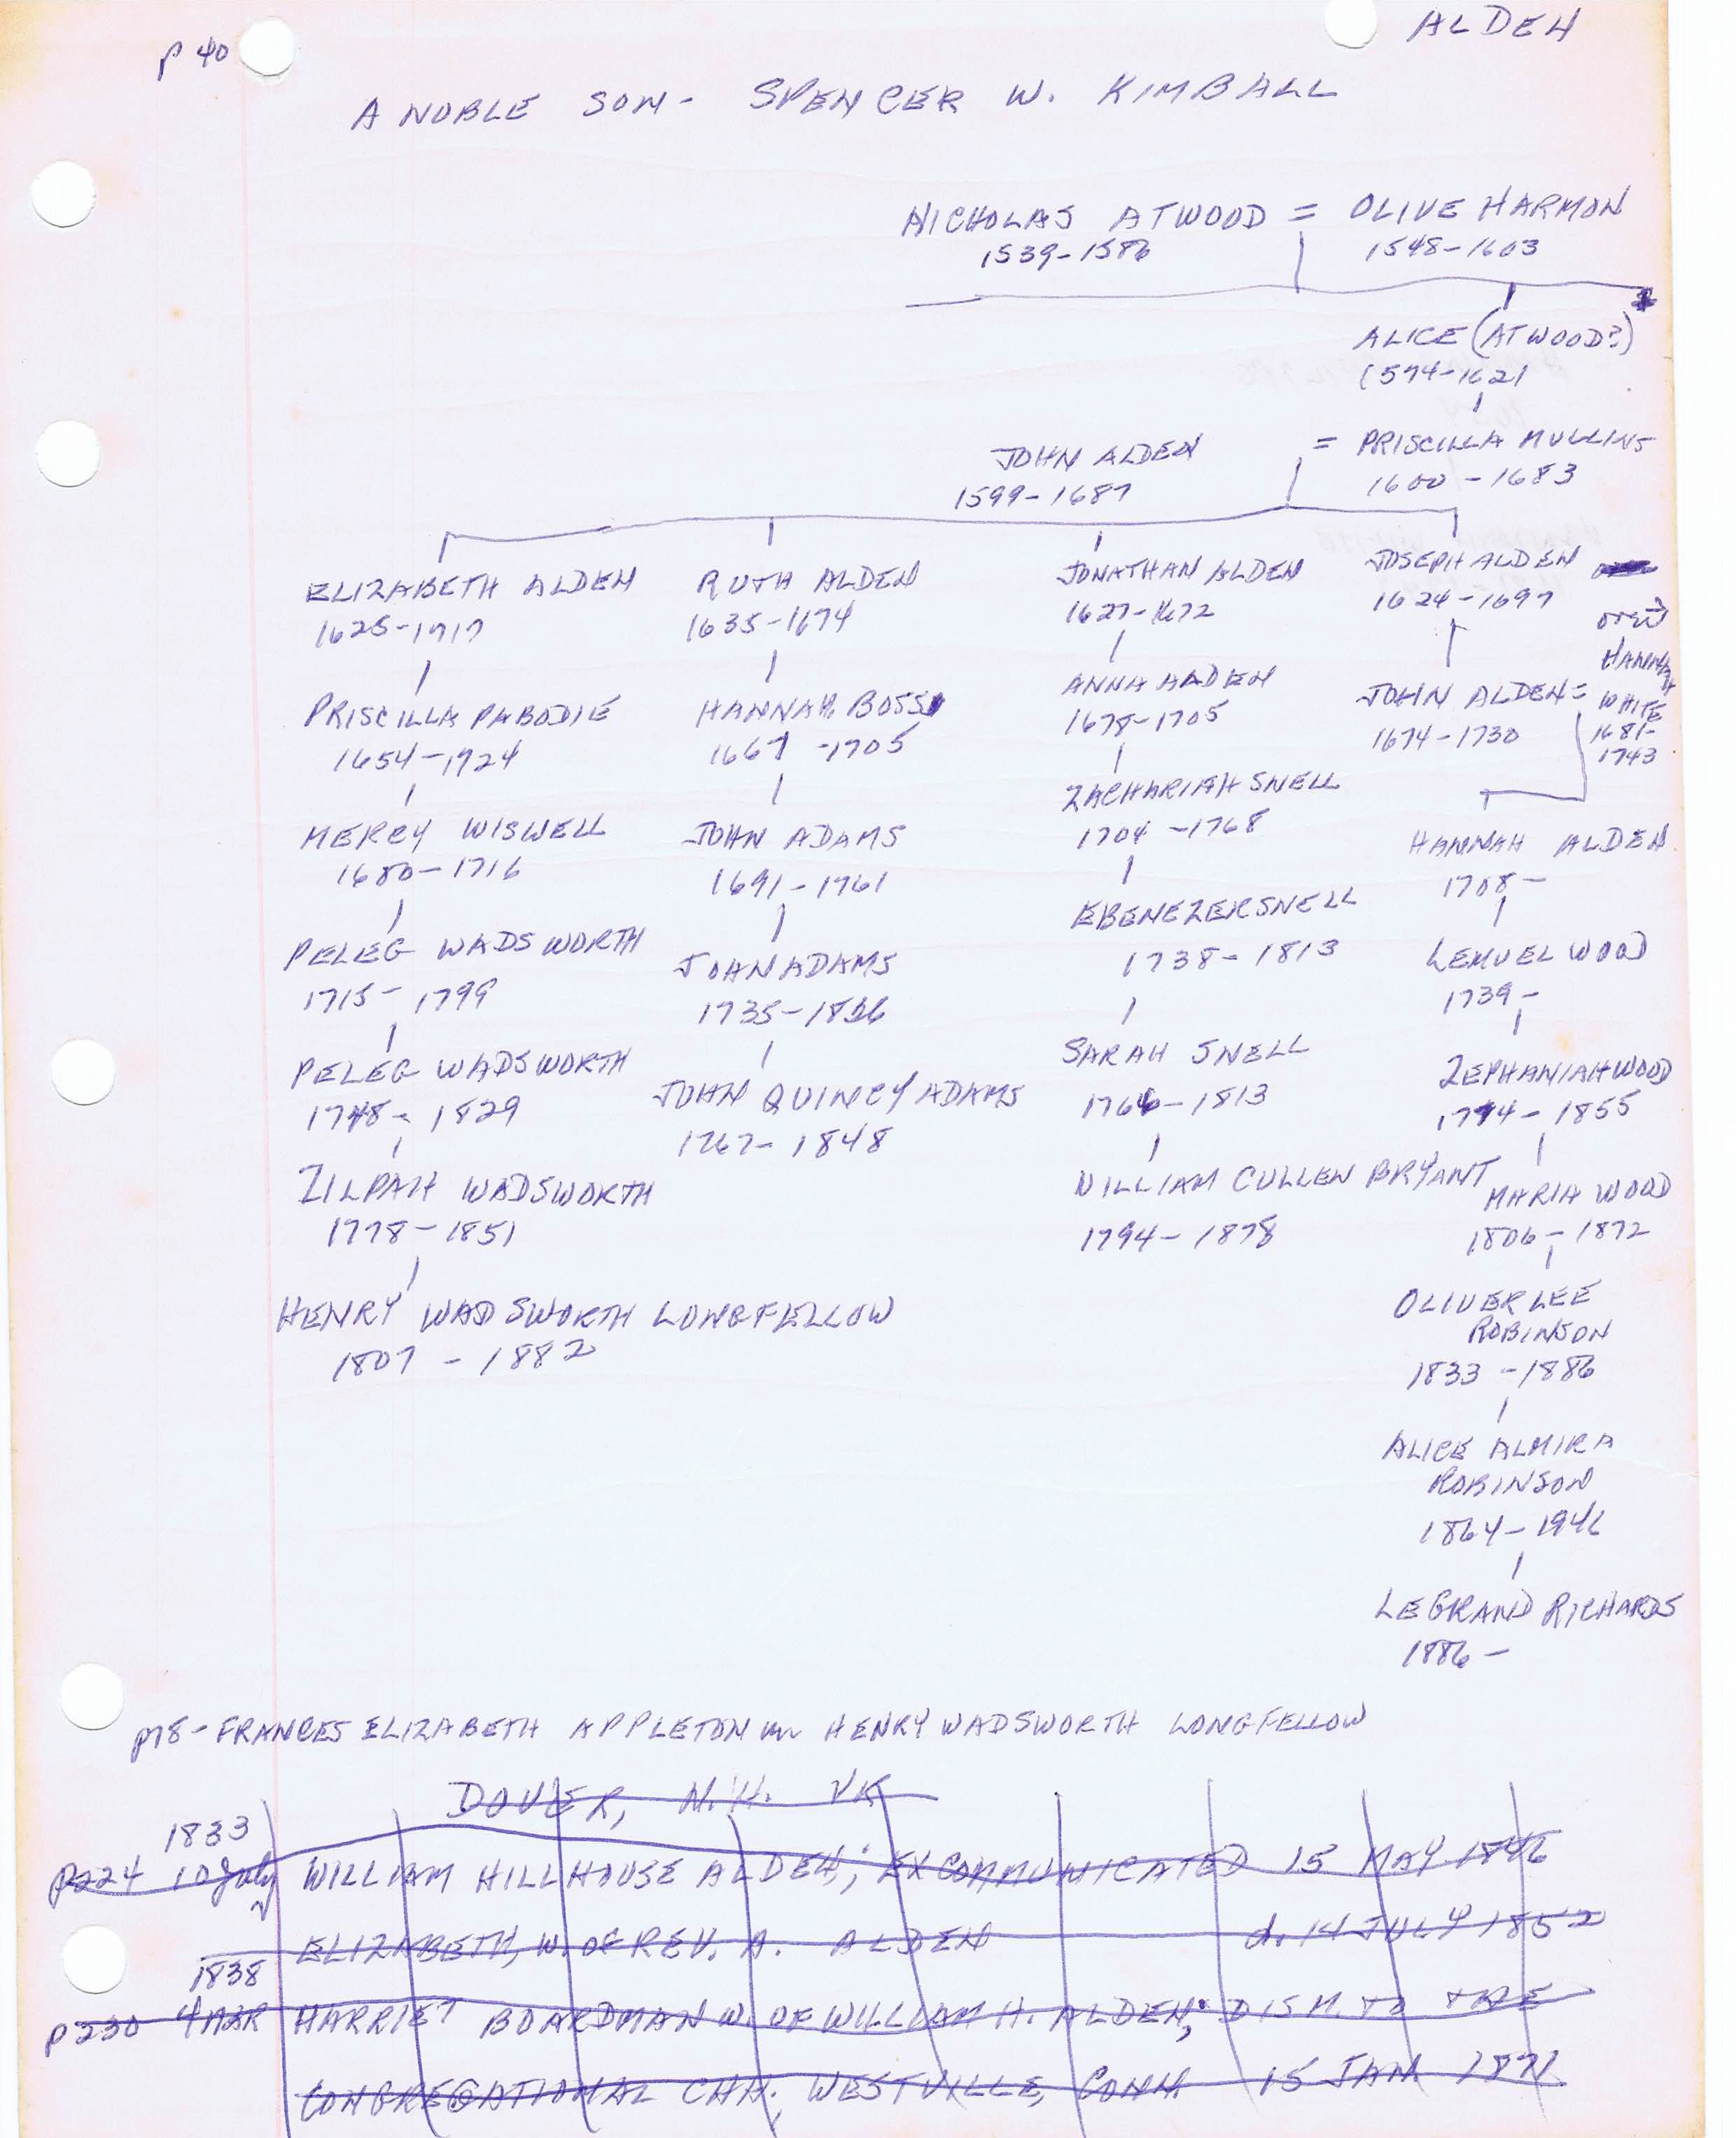 ALDEN
p 40
A NOBLE SON - SPENCER W. KIMBALL
NICHOLAS ATWOOD = OLIVE HARMON
1539-1586 1548-1603
ALICE (ATWOOD?)
1574-1621
JOHN ALDEN = PRISCILLA MULLINS
1599-1687 1600-1683
ELIZABETH ALDEN
1625-1717
PRISCILLA PABODIE
1654-1724
MERCY WISWELL
1680-1716
PELEG WADSWORTH
1715-1799
PELEG WADSWORTH
1748-1829
ZILPAH WADSWORTH
1778-1851
HENRY WADSWORTH LONGFELLOW
1807-1882
RUTH ALDEN
1635-1674
HANNAH BOSS
1667-1705
JOHN ADAMS
1691-1761
JOHN ADAMS
1735-1826
JOHN QUINCY ADAMS
1767-1848
JONATHAN ALDEN
1627-1672
ANNA ALDEN
1678-1705
ZACHARIAH SNELL
1704-1768
EBENEZER SNELL
1738-1813
SARAH SNELL
1766-1813
WILLIAM CULLEN BRYANT
1794-1878
JOSEPH ALDEN
1624-1697
over
JOHN ALDEN = HANNAH
WHITE
1674-1730 1681-
1743
HANNAH ALDEN
1708-
LEMUEL WOOD
1739-
ZEPHANIAH WOOD
1774-1855
MARIA WOOD
1806-1872
OLIVER LEE
ROBINSON
1833-1886
ALICE ALMIRA
ROBINSON
1864-1946
LEGRAND RICHARDS
1886-
p78 - FRANCES ELIZABETH APPLETON m HENRY WADSWORTH LONGFELLOW
DOVER, N.H. VR
1833
p224 10 July WILLIAM HILLHOUSE ALDEN; EXCOMMUNICATED 15 MAY 1846
ELIZABETH, W. OF REV. A. ALDEN d. 14 JULY 1852
1838
p230 4 MAR HARRIET BOARDMAN W. OF WILLIAM H. ALDEN; DISM. TO THE
CONGREGATIONAL CHH. WESTVILLE, CONN 15 JAN 1871